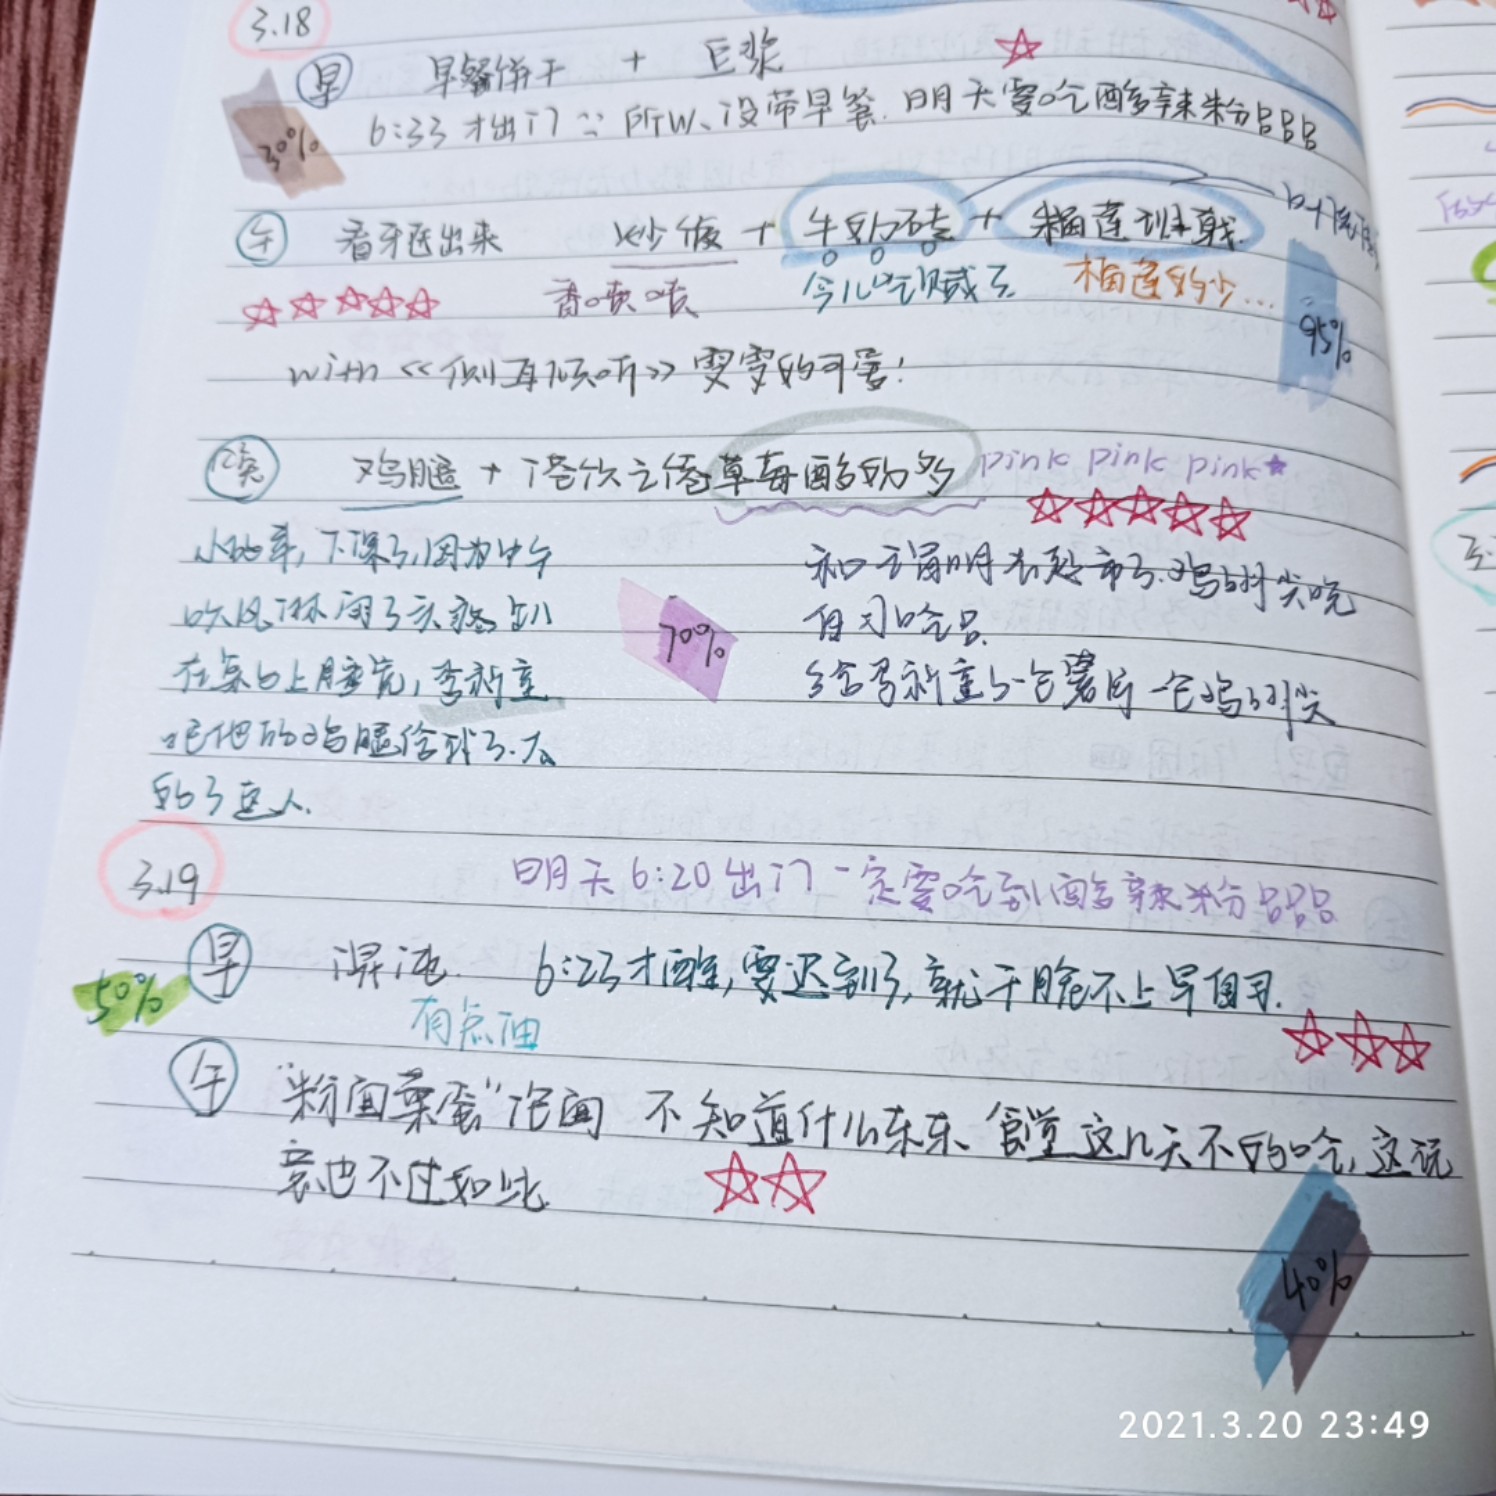 3.18
早 早餐饼干 + 豆浆
30% 6:33才出门 所以没带早餐.明天要吃酸辣粉呂呂呂
午 看牙医出来 炒饭 + 牛奶砖 + 榴莲班戟
香喷喷 今儿吃腻了 榴莲奶少...
95%
with《侧耳倾听》雯雯的可爱!
晚 鸡腿 + 港饮之港草莓酸奶多 pink pink pink
下课了,因为中午
吹风淋闭了头痛趴
在桌上睡觉,李新童
吧他的鸡腿给我了.太
奶了这人.
70%
和 明去超市了.
自习吃呂.
给李新童了一包薯片一包
3.19 明天6:20出门一定要吃到酸辣粉呂呂呂
早 混沌. 6:23才醒,要迟到了,就干脆不上早自习.
50% 有点油
午 "粉面菜蛋"泡面 不知道什么东东、食堂这几天不好吃,这玩
意也不过如此
40%
2021.3.20 23:49